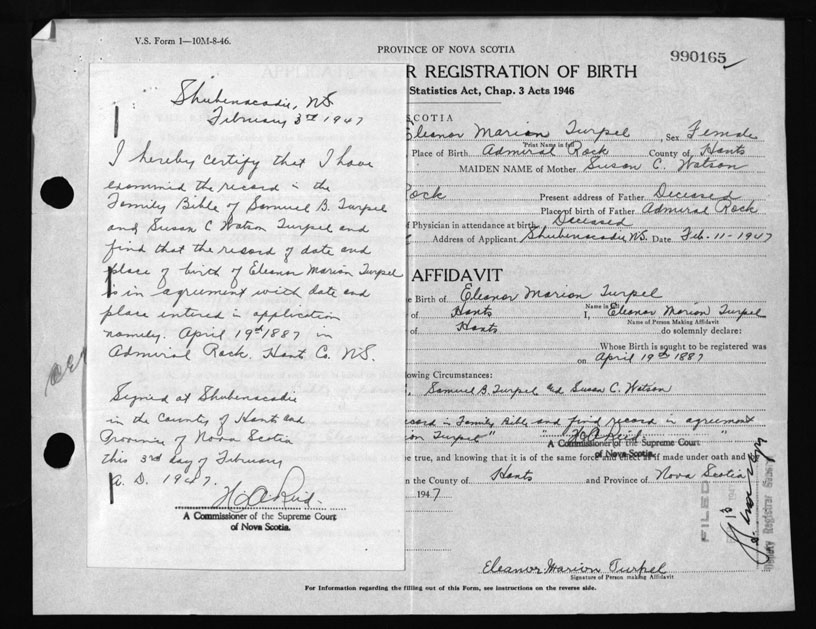 V.S. Form 1—10M-8-46.
PROVINCE OF NOVA SCOTIA
990165
R REGISTRATION OF BIRTH
Statistics Act, Chap. 3 Acts 1946
Shubenacadie, NS
February 3rd 1947
I hereby certify that I have
examined the record in the
Family Bible of Samuel B. Turpel
and Susan C Watson Turpel and
find that the record of date and
place of birth of Eleanor Marion Turpel
is in agreement with date and
place entered in application
namely. April 19th 1887 in
Admiral Rock. Hant Co. N.S.
Signed at Shubenacadie
in the County of Hants and
Province of Nova Scotia
this 3rd day of February
A. D. 1947.
H A Reid.
A Commissioner of the Supreme Court
of Nova Scotia.
SCOTIA
Eleanor Marion Turpel, Sex Female
Print Name in full
Place of Birth Admiral Rock County of Hants
MAIDEN NAME of Mother Susan C. Watson
Rock Present address of Father Deceased
Place of birth of Father Admiral Rock
f Physician in attendance at birth Deceased
Address of Applicant Shubenacadie, N.S. Date Feb-11-1947
AFFIDAVIT
e Birth of Eleanor Marion Turpel
of Hants I, Eleanor Marion Turpel
Name in full
Name of Person Making Affidavit
of Hants do solemnly declare:
Whose Birth is sought to be registered was
on April 19th 1887
owing Circumstances:
Samuel B. Turpel and Susan C. Watson
record in Family Bible and find record in agreement
on Turpel" "H A Reid "
A Commissioner of the Supreme Court
of Nova Scotia.
be true, and knowing that it is of the same force and effect as if made under oath and
n the County of Hants and Province of Nova Scotia
1947
FILED
Deputy Registrar
Eleanor Marion Turpel
Signature of Person making Affidavit
For Information regarding the filling out of this Form, see instructions on the reverse side.